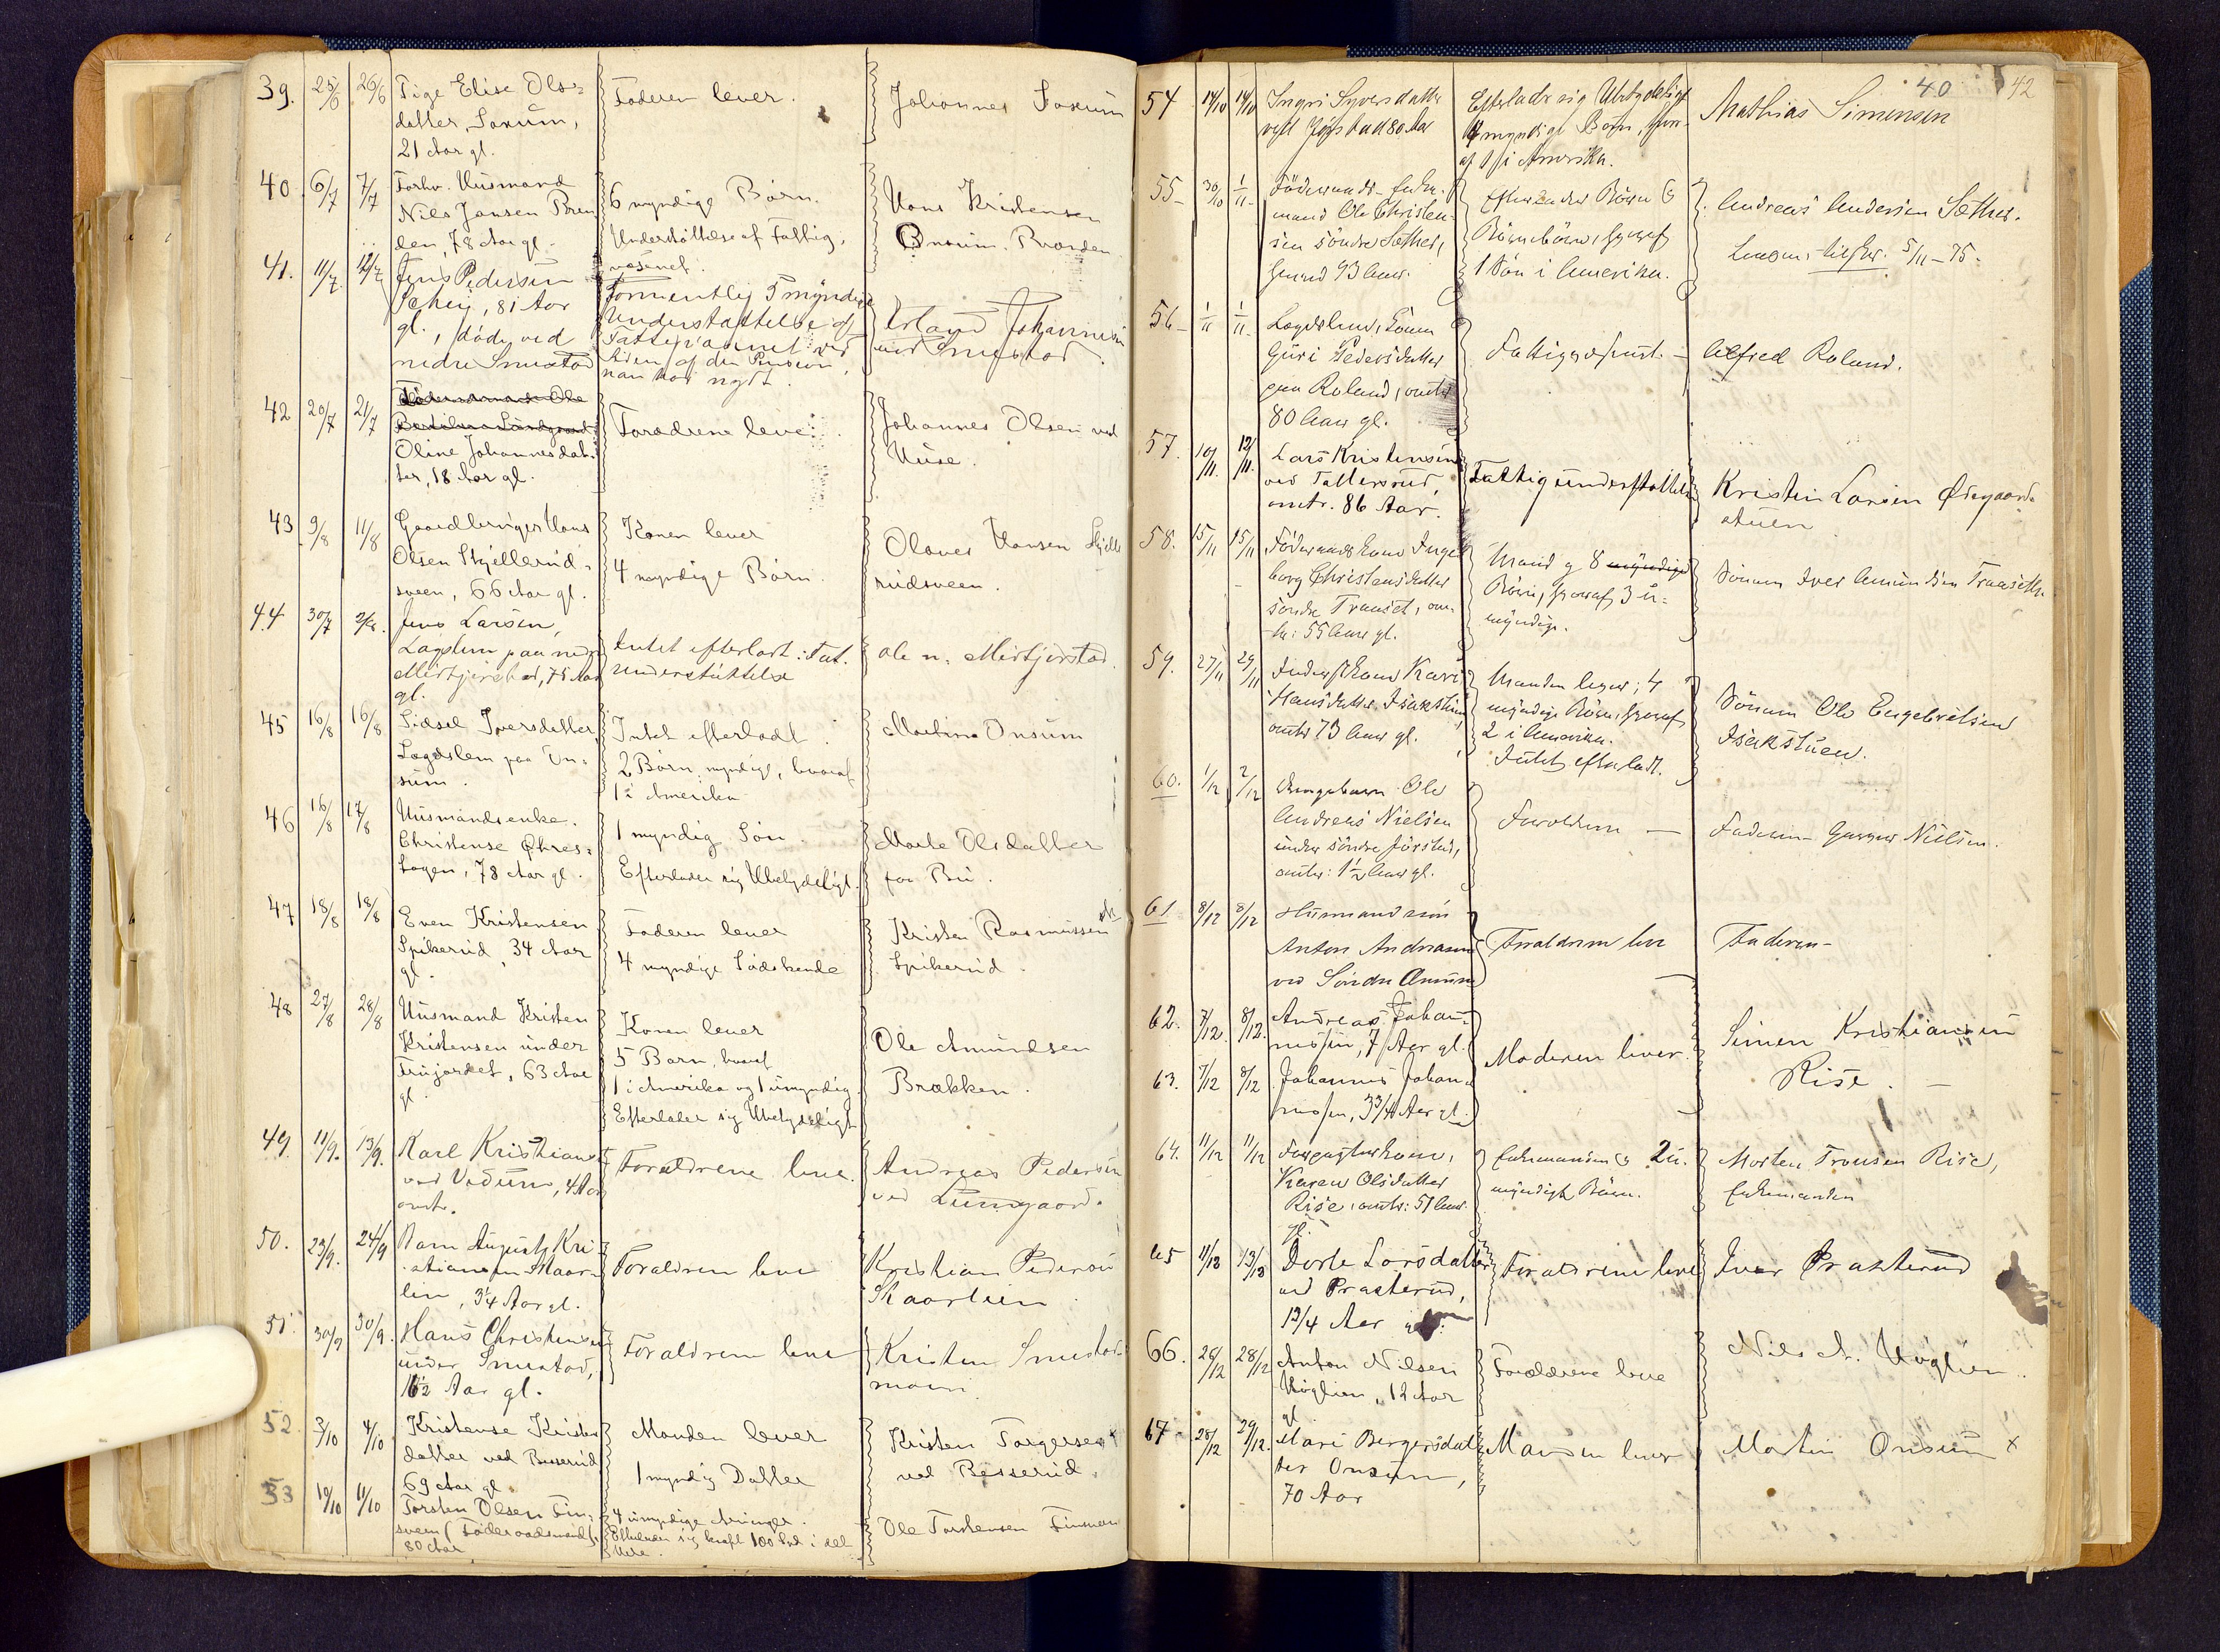 39. 25/6 26/6 Pige Elise Ols=
datter, Saxum,
21 Aar gl.
Faderen lever.
Johannes Saxum
40. 6/7 7/7 Forhv. Husmand
Nils Jansen Bren
den, 78 Aar gl.
6 myndige Børn.
Understøttelse af Fattig-
væsenet.
Hans Kristensen
Onsum
41. 11/7 12/7 Jens Pedersen
81 Aar
gl., døde ved
nedre Smestad
Formentlig 5 myndige
Understøttelse af
Fattigvæsenet ved
Siden af den Pension,
han har nydt.
Erland Johannesen
ved Smestad
42 20/7 21/7 Oline Johannesdat-
ter, 18 Aar gl.
Forældrene leve.
Johannes Olsen ved
Huse.
43 9/8 11/8 Gaardbruger Hans
Olsen Skjellerud=
sveen, 66 Aar gl.
Konen lever
4 myndige Børn.
Olaves Hansen Skjelle
rudsveen.
44 30/7 2/8. Jens Larsen,
Lægdslem paa nedre
Mestgjerstad, 75 Aar
gl.
Intet efterladt: Fat.
understøttelse
Ole n. Mestgjerstad.
45 16/8 16/8 Sidsel Iversdatter,
Lægdslem paa On=
sum.
Intet efterladt
2 Børn, myndige, hvoraf
1 i Amerika
Martin Onsum
46 16/8 17/8 Husmandsenke.
Christense Økres=
hagen, 78 Aar gl.
1 myndig Søn.
Efterlader sig Ubetydeligt.
Marte Olsdatter
paa Bu.
47 18/8 18/8 Even Kristensen
Spikerud, 34 Aar
gl.
Faderen lever
4 myndige Sødskende
Kristen Rasmussen
Spikerud.
48 27/8 28/8 Husmand Kristen
Kristensen under
Frujordet, 63 Aar
gl.
Konen lever
5 Børn, hvoraf
1 i Amerika og 1 umyndig
Efterlader sig Ubetydeligt
Ole Amundsen
Brækken.
49. 11/9. 13/9. Karl Kristians
ved Vedum, 4 Aar
omtr.
Forældrene leve.
Andreas Pedersen
ved Lumgaard.
50. 23/9. 24/9 Barn August Kri-
stiansen Skaar-
lien, 3/4 Aar gl.
Forældren leve
Kristian Pedersen
Skaarlien.
51. 30/9 30/9. Hans Christensen
under Smestad,
Aar gl.
Forældren leve
Kristen Smestad-
moen.
52. 3/10 4/10 Kristense Kristen
datter ved Besserud
69 Aar gl.
Manden lever
1 myndig Datter
Kristen Torgersen
ved Besserud.
53 10/10 11/10 Torsten Olsen Fin=
sveen (Føderaadsmand),
80 Aar
4 umyndige Arvinger.
Ole Torstensen Finsveen
40 42
54 14/10 14/10 Ingri Syversdatter
ved Jørstad 80 Aar
Efterlade sig Ubetydeligt
4 myndige Børn, hvor-
af 1 i Amerika.
Mathias Simensen
55 30/10 1/11 Føderaads-Enke-
mand Ole Christen-
sen søndre Sæther,
henved 93 Aar.
Efterlader Børn &
Børnebørn, hvoraf
1 Søn i Amerika.
Andreas Andersen Sæther.
5/11-75.
56 1/11 1/11 Lægdslem, Konen
Guri Pedersdatter
paa Roland, omtr
80 Aar gl.
Fattigunderst. -
Alfred Roland.
57. 10/11. 12/11. Lars Kristensen
ved Tallerssrud,
omtr. 86 Aar.
Fattigunderstøttelse
Kristen Larsen Ødegaard-
stuen
58. 15/11 15/11 Føderaadskone Inge-
borg Christensdatter
søndre Traaset, om-
tr: 55 Aar gl.
Mand og 8 myndige
Børn, hvoraf 3 u-
myndige.
Sønnen Iver Amundsen Traaseth.
59. 27/11 29/11 Inderstkone Kari
Hansdatter Isakstuen,
omtr 73 Aar gl.
Manden lever; 4
myndige Børn, hvoraf
2 i Amerika.
Intet efterladt.
Sønnen Ole Engebretsen
Isakstuen.
60. 1/12 2/12 Drengebarn Ole
Andreas Nielsen
under søndre Jørstad,
omtr: 1 1/2 Aar gl.
Forældren -
Faderen Gunnar Nielsen.
61 8/12 8/12 Husmandssøn
Anton Andreasen
ved Søndre Onsum
Forældren leve
Faderen-
62. 7/12. 8/12. Andreas Johan-
nessen, 7 Aar gl.
Moderen lever.
Simen Kristiansen
Rise.
63. 7/12 8/12 Johannes Johan-
nessen, 3 3/4 Aar gl.
64. 11/12 11/12 Karen Olsdatter
Rise, omtr: 51 Aar
gl.
Enkemanden & 2 u-
myndige Børn.
Morten Fransen Rise,
Enkemanden
65 11/12 13/12 Dorte Larsdatter
ved Præsterud,
1 3/4 Aar
Forældrene leve
Iver Præsterud
66. 26/12 28/12 Anton Nilsen
Høglien, 12 Aar
gl.
Forældrene leve
Nils A. Høglien.
67 28/12 29/12. Mari Børgersdat
ter Onsum,
70 Aar
Manden lever
Martin Onsum x